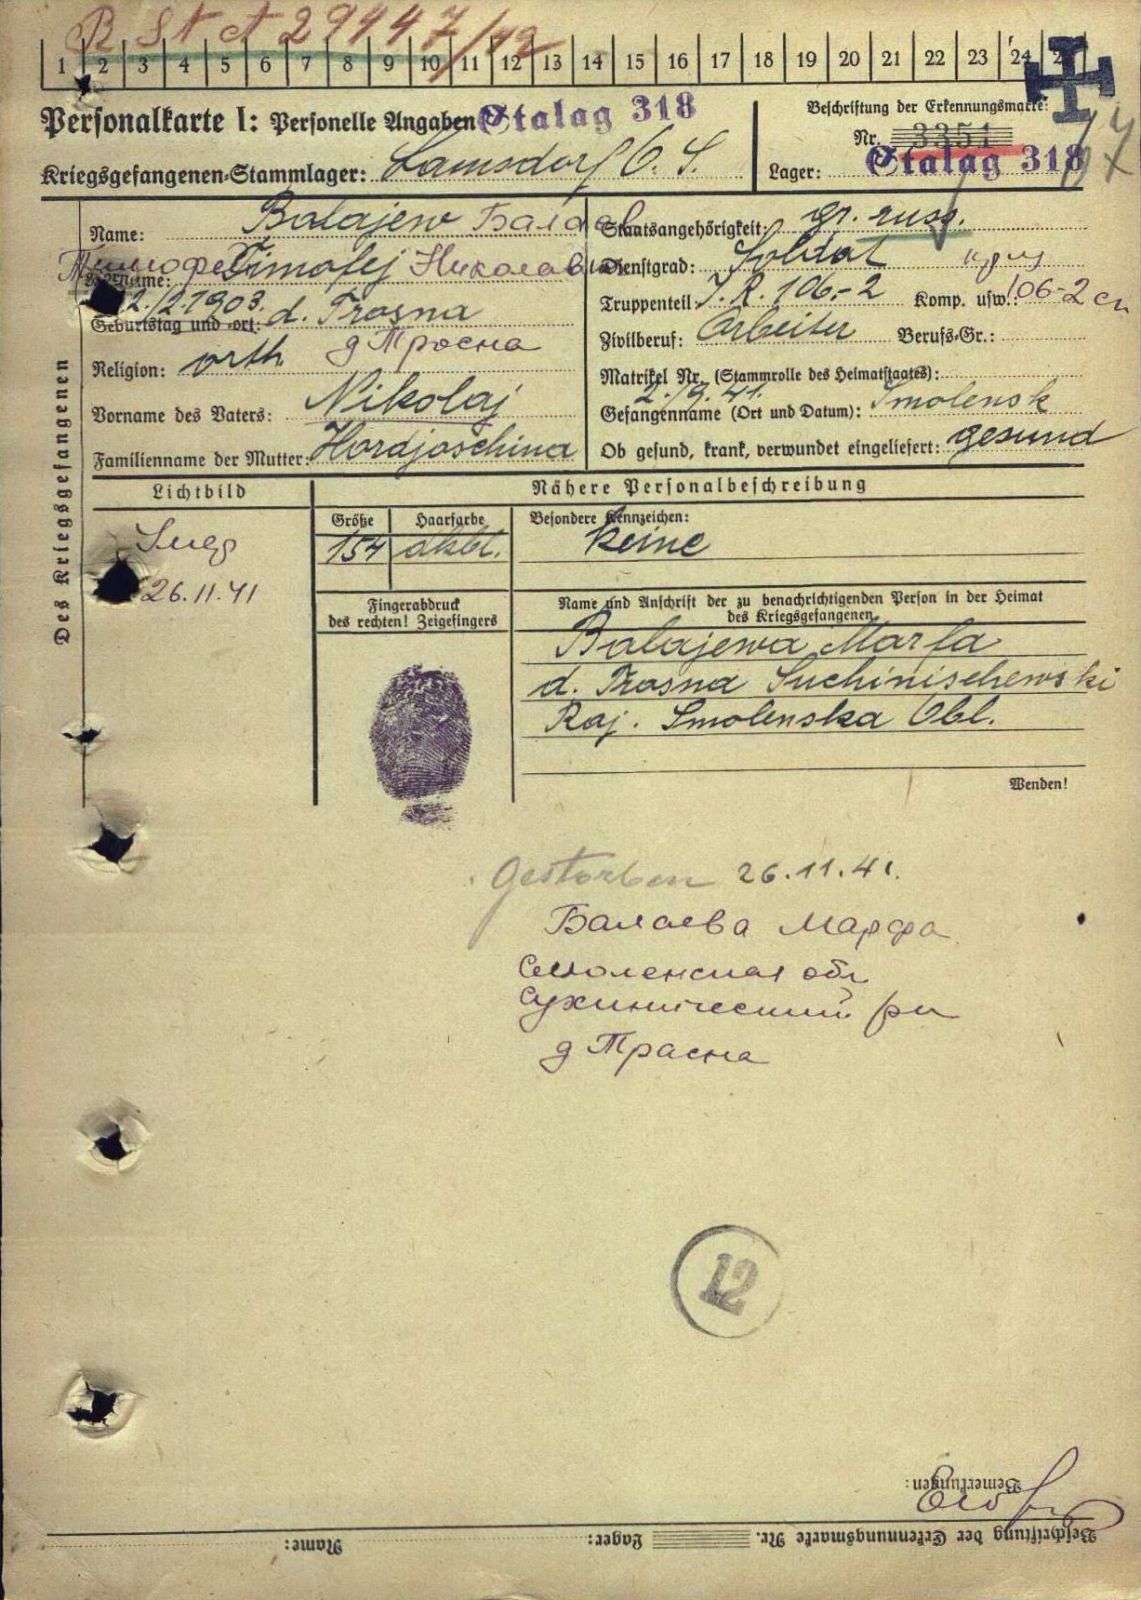 R. St. A 29447/42
1 2 3 4 5 6 7 8 9 10 11 12 13 14 15 16 17 18 19 20 21 22 23 24
Personalkarte I: Personelle Angaben Stalag 318
Kriegsgefangenen-Stammlager: Lamsdorf O. S.
Beschriftung der Erkennungsmarke:
Nr. 3351
Lager: Stalag 318
Des Kriegsgefangenen
Name: Balajew Балаев
Vorname: Timofej Николаев
Geburtstag und -ort: 2./2.1903. d. Trosna
д Тросна
Religion: orth
Vorname des Vaters: Nikolaj
Familienname der Mutter: Hordjoschina
Staatsangehörigkeit: gr. russ.
Dienstgrad: Soldat
Truppenteil: I.R. 106.-2 Komp. usw.: 106-2
Zivilberuf: Arbeiter Berufs-Gr.:
Matrikel Nr. (Stammrolle des Heimatstaates):
Gefangennahme (Ort und Datum): 2./9.41. Smolensk
Ob gesund, krank, verwundet eingeliefert: gesund
Lichtbild
26.11.41
Nähere Personalbeschreibung
Größe Haarfarbe Besondere Kennzeichen:
154 dkbl. keine
Fingerabdruck
des rechten! Zeigefingers
Name und Anschrift der zu benachrichtigenden Person in der Heimat
des Kriegsgefangenen
Balajewa Marfa
d. Trosna Suchinischewski
Raj. Smolenska Obl.
Wenden!
Gestorben 26.11.41.
Балаева Марфа
Смоленская обл
Сухинический рн
д Трасна
12
Bemerkungen:
Beschriftung der Erkennungsmarke Nr. Lager: Name: